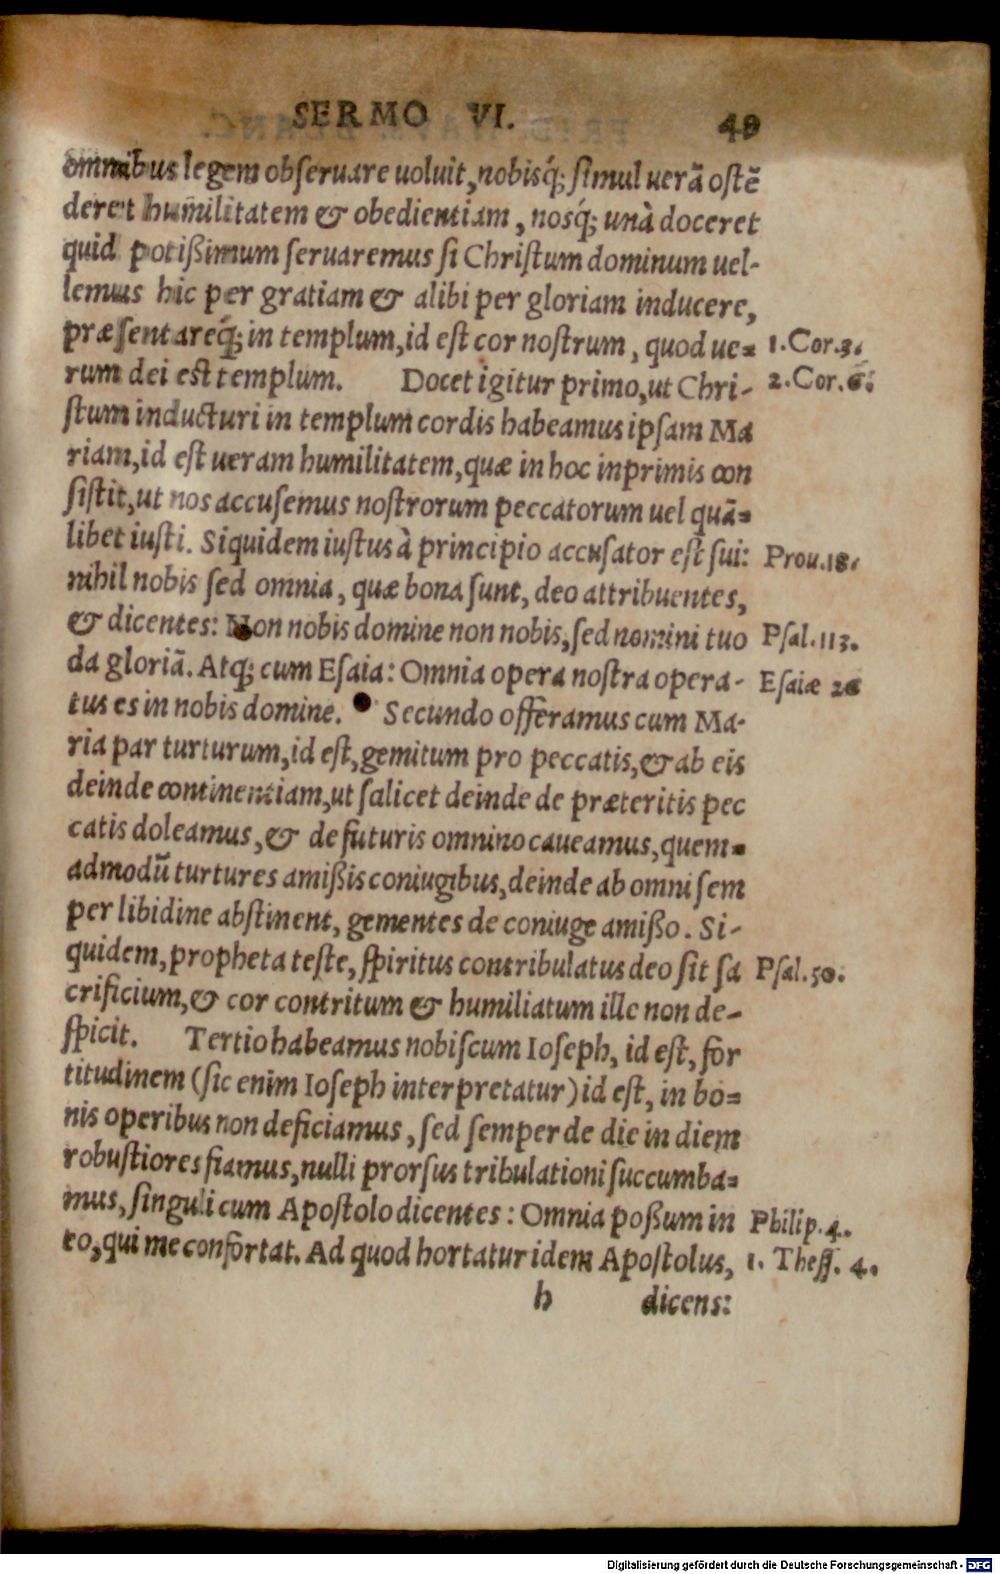 SERMO VI. 49
omnibus legem obſeruare uoluit, nobisq́; ſimul uerā oſtē
deret humilitatem & obedientiam, nosq́; unà doceret
quid potißimum ſeruaremus ſi Chriſtum dominum uel-
lemus hic per gratiam & alibi per gloriam inducere,
præſentareq́; in templum, id eſt cor noſtrum, quod ue= 1. Cor. 3.
rum dei est templum. Docet igitur primo, ut Chri- 2. Cor. 6.
ſtum inducturi in templum cordis habeamus ipſam Ma
riam, id eſt ueram humilitatem, quæ in hoc inprimis con
ſiſtit, ut nos accuſemus noſtrorum peccatorum uel quā=
libet iusti. Siquidem iuſtus à principio accuſator eſt ſui: Prou. 18.
nihil nobis ſed omnia, quæ bona ſunt, deo attribuentes,
& dicentes: Non nobis domine non nobis, ſed nomini tuo Pſal. 113.
da gloriā. Atq; cum Eſaia: Omnia opera noſtra opera- Eſaiæ 26
tus es in nobis domine. Secundo offeramus cum Ma-
ria par turturum, id eſt, gemitum pro peccatis, & ab eis
deinde continentiam, ut ſcalicet deinde de præteritis pec
catis doleamus, & de futuris omnino caueamus, quem=
admodū turtures amißis coniugibus, deinde ab omni ſem
per libidine abſtinent, gementes de coniuge amißo. Si-
quidem, propheta teſte, ſpiritus contribulatus deo ſit ſa Pſal. 50.
crificium, & cor contritum & humiliatum ille non de-
ſpicit. Tertio habeamus nobiſcum Ioſeph, id eſt, for
titudinem (ſic enim Ioſeph interpretatur) id eſt, in bo=
nis operibus non deficiamus, ſed ſemper de die in diem
robuſtiores fiamus, nulli prorſus tribulationi ſuccumba=
mus, ſinguli cum Apoſtolo dicentes: Omnia poßum in Philip. 4.
eo, qui me confortat. Ad quod hortatur idem Apoſtolus, 1. Theſſ. 4.
h dicens:
Digitalisierung gefördert durch die Deutsche Forschungsgemeinschaft - DFG